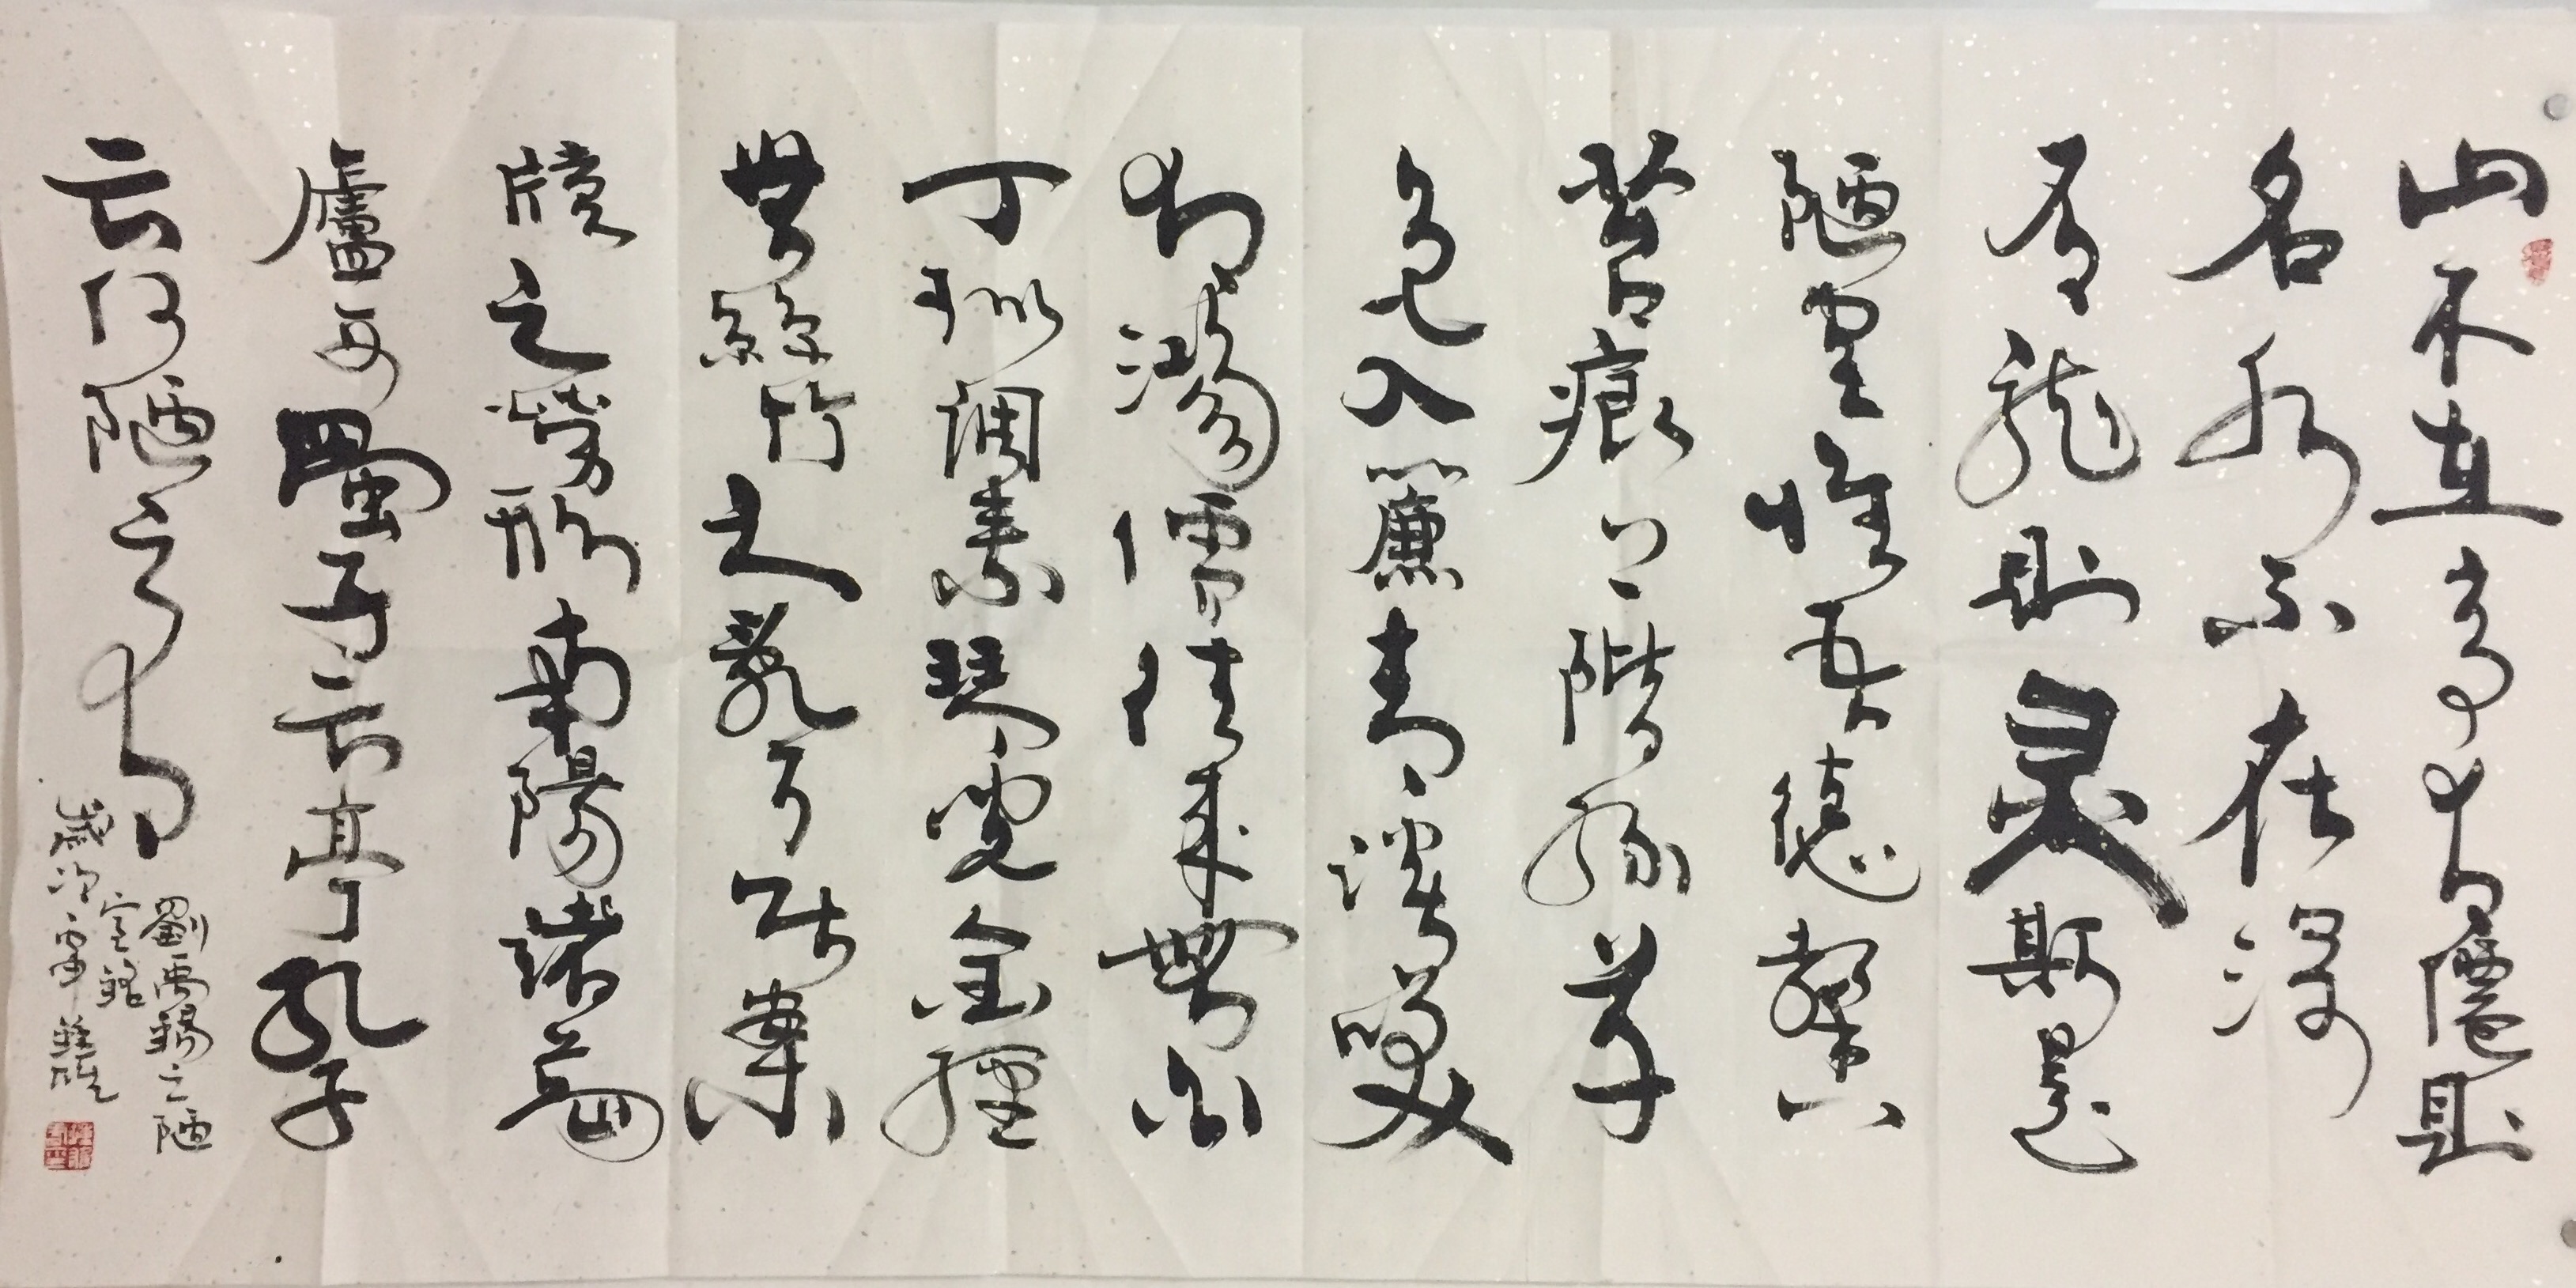 山不在高有僊則
名水不在深
有龍則灵斯是
陋室惟吾德馨
苔痕上階綠草
色入簾青談笑
有鴻儒往來無白
丁可以調素琴閱金經
無絲竹之亂耳無案
牘之勞形南陽諸葛
廬西蜀子云亭孔子
云何陋之有
劉禹錫之陋
室銘
歲次丙申